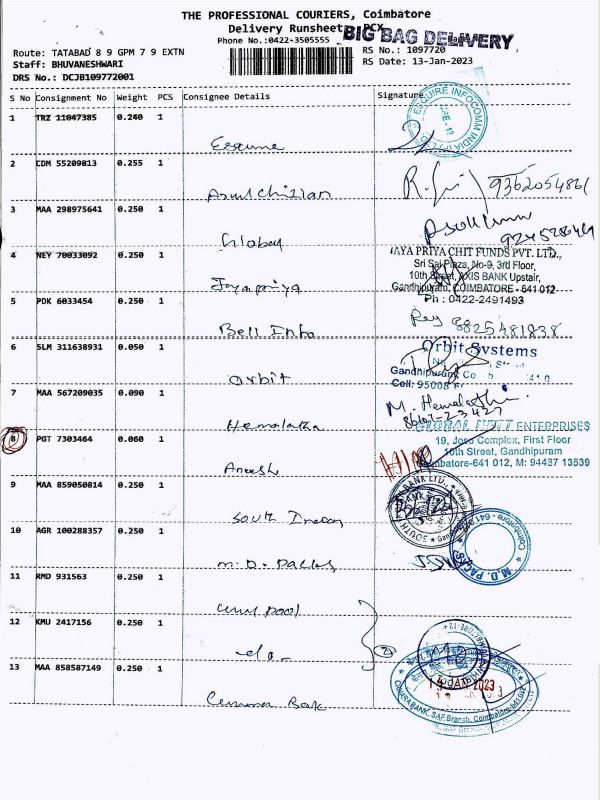 THE PROFESSIONAL COURIERS, Coimbatore
Delivery Runsheet PCX
BIG BAG DELIVERY
Phone No.:0422-3505555
Route: TATABAD 8 9 GPM 7 9 EXTN
RS No.: 1097720
Staff: BHUVANESHWARI
RS Date: 13-Jan-2023
DRS No.: DCJB109772001
S No Consignment No Weight PCS Consignee Details Signature
ESQUIRE INFOCOMM INDIA
1 TRZ 11047385 0.240 1
Esquire
2 CDM 55209813 0.255 1
9362054861
3 MAA 298975641 0.250 1
Global
4 NEY 70033092 0.250 1
JAYA PRIYA CHIT FUNDS PVT. LTD.,
Sri Sai Plaza, No-9, 3rd Floor,
10th Street, AXIS BANK Upstair,
Gandhipuram, COIMBATORE - 641 012
Ph : 0422-2491493
Jayapriya
5 PDK 6033454 0.250 1
8825481838
Bell Info
6 SLM 311638931 0.050 1
Orbit Systems
Gandhipuram
Cell: 95008
Orbit
7 MAA 567209035 0.090 1
M. Hemalatha
Hemalatha
GLOBAL NEXT ENTERPRISES
8 PGT 7303464 0.060 1
19, Joso Complex, First Floor
10th Street, Gandhipuram
Coimbatore-641 012, M: 94437 13539
9 MAA 859050814 0.250 1
SOUTH BANK LTD.
South Indian
10 AGR 100288357 0.250 1
M.D. PACKS Coimbatore - 641
M.D. Packs
11 RMD 931563 0.250 1
12 KMU 2417156 0.250 1
-do-
13 MAA 858587149 0.250 1
2023
CANARA BANK, SAF Branch, Coimbatore-641012
Canara Bank